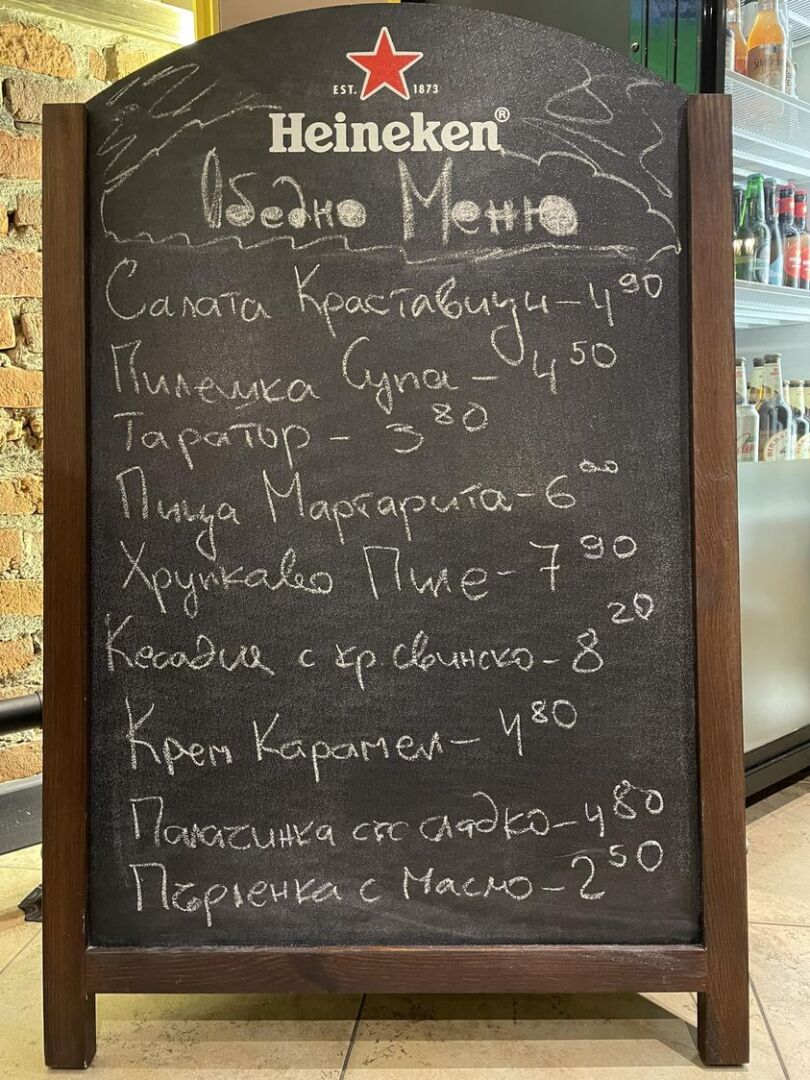 EST. 1873
Heineken®
Обедно Меню
Салата Краставици – 4 90
Пилешка Супа – 4 50
Таратор – 3 80
Пица Маргарита – 6 00
Хрупкаво Пиле – 7 90
Кесадия с кр. свинско – 8 20
Крем Карамел – 4 80
Палачинка със сладко – 4 80
Пърленка с масло – 2 50